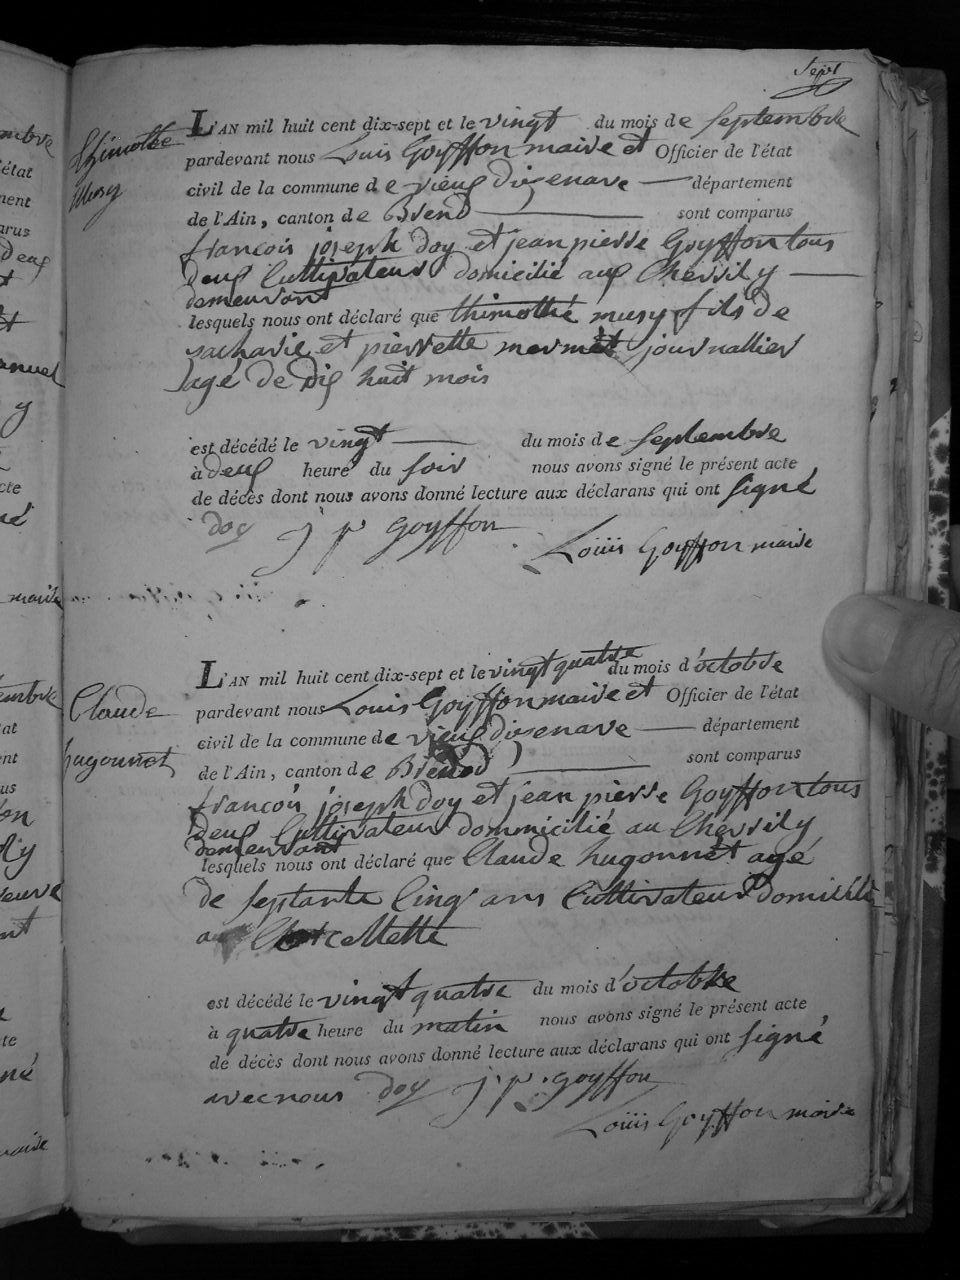 Sept
Thimothé
Musy
L'AN mil huit cent dix-sept et le vingt du mois de Septembre
pardevant nous Louis Goyffon maire et Officier de l'état
civil de la commune de vieux dizenave département
de l'Ain, canton de Brend sont comparus
francois joseph doy et jean pierre Goyffon tous
deux Cultivateur domicilié aux Chevrily
demeurant
lesquels nous ont déclaré que thimothé musy fils de
sacharie et pierrette mermet journallier
agé de dix huit mois
est décédé le vingt du mois de Septembre
à deux heure du soir nous avons signé le présent acte
de décès dont nous avons donné lecture aux déclarans qui ont signé
doy j p goyffon
Louis Goyffon maire
Claude
hugonnet
L'AN mil huit cent dix-sept et le vingt quatre du mois d'octobre
pardevant nous Louis Goyffon maire et Officier de l'état
civil de la commune de vieux dizenave département
de l'Ain, canton de Brenod sont comparus
francois joseph doy et jean pierre Goyffon tous
deux Cultivateur dommicilié au Chevrily
demeurant
lesquels nous ont déclaré que Claude hugonnet agé
de septante Cinq ans Cultivateur domicilié
est décédé le vingt quatre du mois d'octobre
à quatre heure du matin nous avons signé le présent acte
de décès dont nous avons donné lecture aux déclarans qui ont signé
avec nous doy j. p. goyffon
Louis Goyffon maire